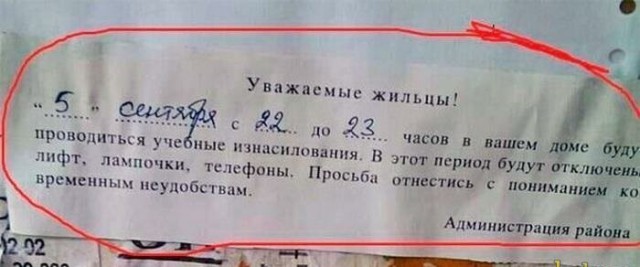 Уважаемые жильцы!
"5" сентября с 22 до 23 часов в вашем доме буду
проводиться учебные изнасилования. В этот период будут отключены
лифт, лампочки, телефоны. Просьба отнестись с пониманием ко
временным неудобствам.
Администрация района
12 02